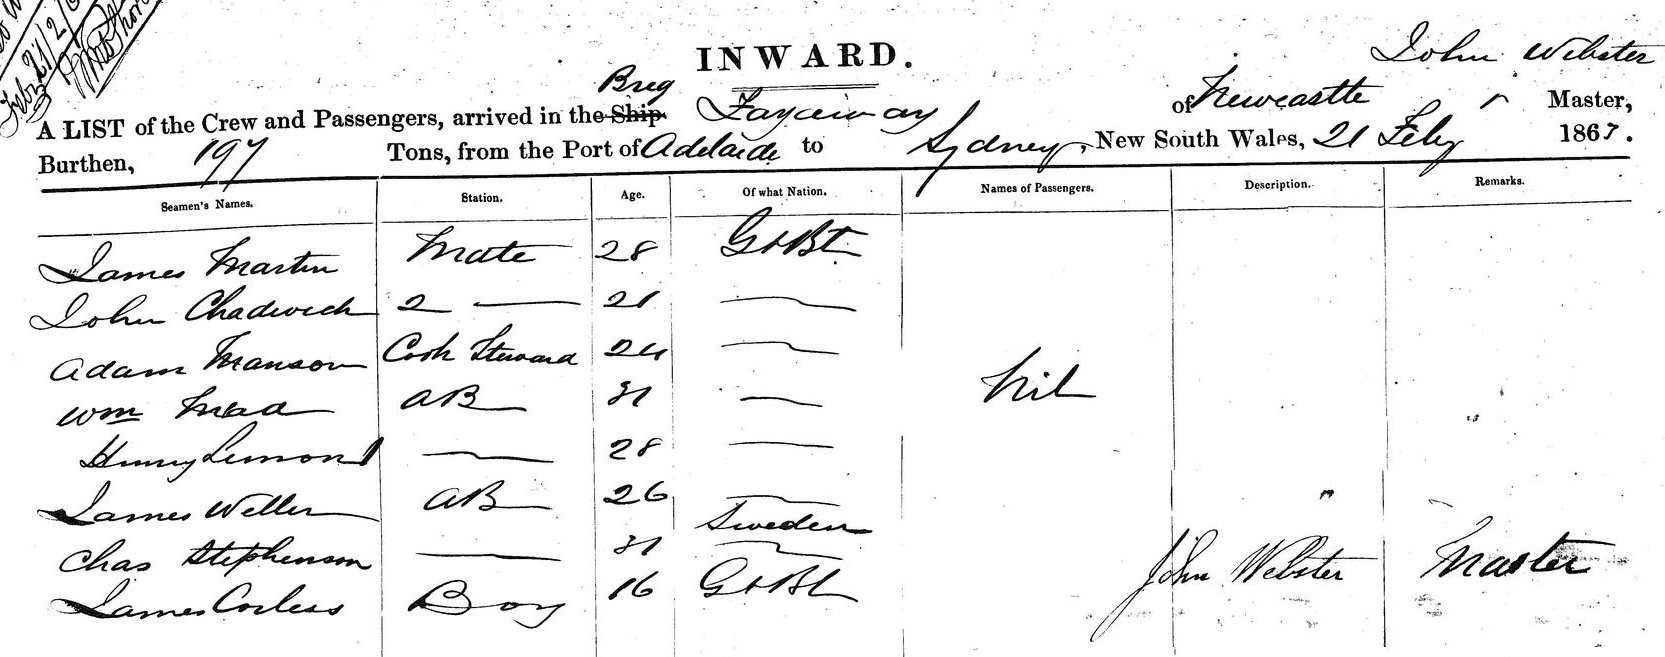 INWARD.
John Webster
A LIST of the Crew and Passengers, arrived in the Ship Brig Fayaway of Newcastle Master,
Burthen, 197 Tons, from the Port of Adelaide to Sydney, New South Wales, 21 Feby 1867.
Seamen's Names. Station. Age. Of what Nation. Names of Passengers. Description. Remarks.
James Martin Mate 28 Gt Bt
John Chadwick 2 — 21 —
Adam Manson Cook Steward 24 —
Wm Mead AB 31 — Nil
Henry Lemon — 28 —
James Weller AB 26 —
Sweden
Chas Stephenson — 31 — John Webster Master
James Corless Boy 16 Gt Bt